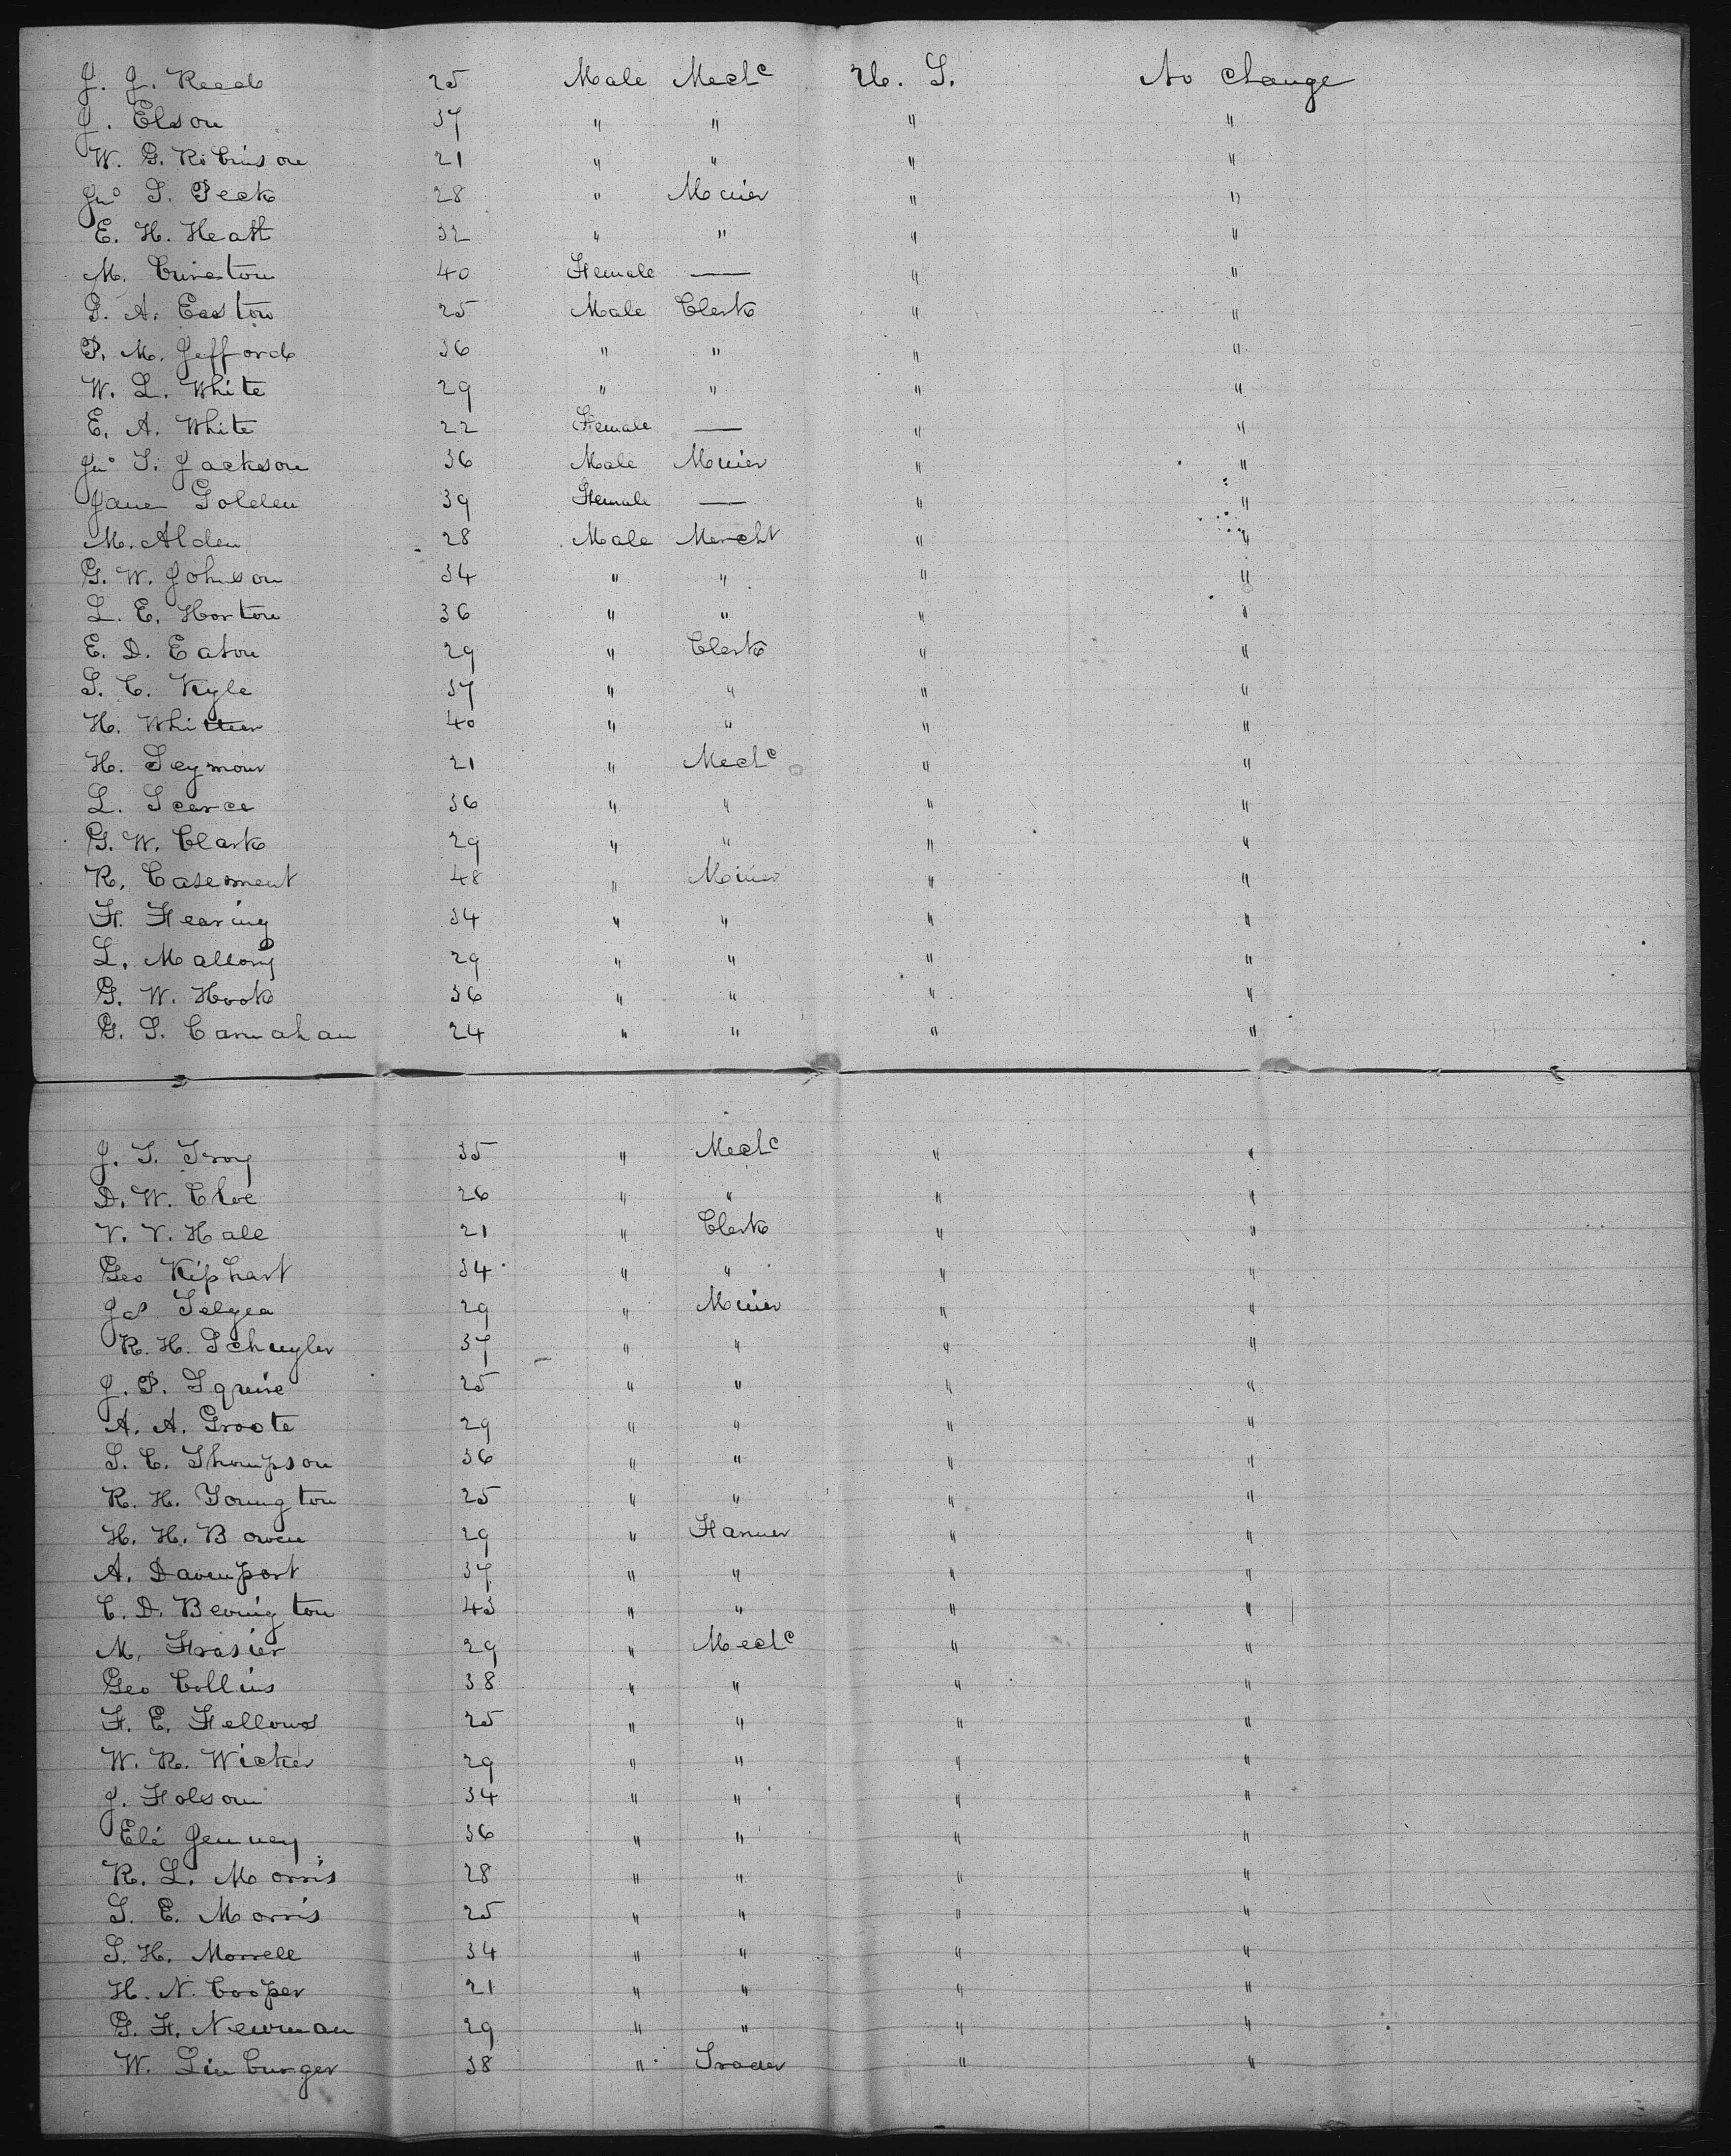 J. J. Reed 25 Male Mechc U. S. No change
J. Elson 37 " " " "
W. G. Robinson 21 " " " "
Jno S. Peck 28 " Miner " "
E. H. Heath 32 " " " "
M. Cureton 40 Female — " "
G. A. Easton 25 Male Clerk " "
P. M. Jefford 36 " " " "
W. L. White 29 " " " "
E. A. White 22 Female — " "
Jno S. Jackson 36 Male Miner " "
Jane Golden 39 Female — " "
M. Alden 28 Male Mercht " "
G. W. Johnson 34 " " " "
L. E. Horton 36 " " " "
E. D. Eaton 29 " Clerk " "
S. C. Kyle 37 " " " "
H. Whittier 40 " " " "
H. Seymour 21 " Mechc " "
L. Scearce 36 " " " "
G. W. Clark 29 " " " "
R. Casement 48 " Miner " "
F. Fearing 34 " " " "
L. Mallory 29 " " " "
G. W. Hook 36 " " " "
G. S. Carnahan 24 " " " "
J. S. Troy 35 " Mechc " "
D. W. Cloe 26 " " " "
V. V. Hall 21 " Clerk " "
Geo Kiphart 34 " " " "
Jas Selgea 29 " Miner " "
R. H. Schuyler 37 " " " "
J. P. Squire 25 " " " "
A. A. Groote 29 " " " "
S. C. Thompson 36 " " " "
R. H. Youngton 25 " " " "
H. H. Bowen 29 " Farmer " "
A. Davenport 37 " " " "
C. D. Bevington 43 " " " "
M. Frasier 29 " Mechc " "
Geo Collins 38 " " " "
F. E. Fellows 25 " " " "
W. R. Wicker 29 " " " "
J. Folsom 34 " " " "
Eli Jenney 36 " " " "
R. L. Morris 28 " " " "
S. E. Morris 25 " " " "
S. H. Morrell 34 " " " "
H. N. Cooper 21 " " " "
G. F. Newman 29 " " " "
W. Linburger 38 " Trader " "